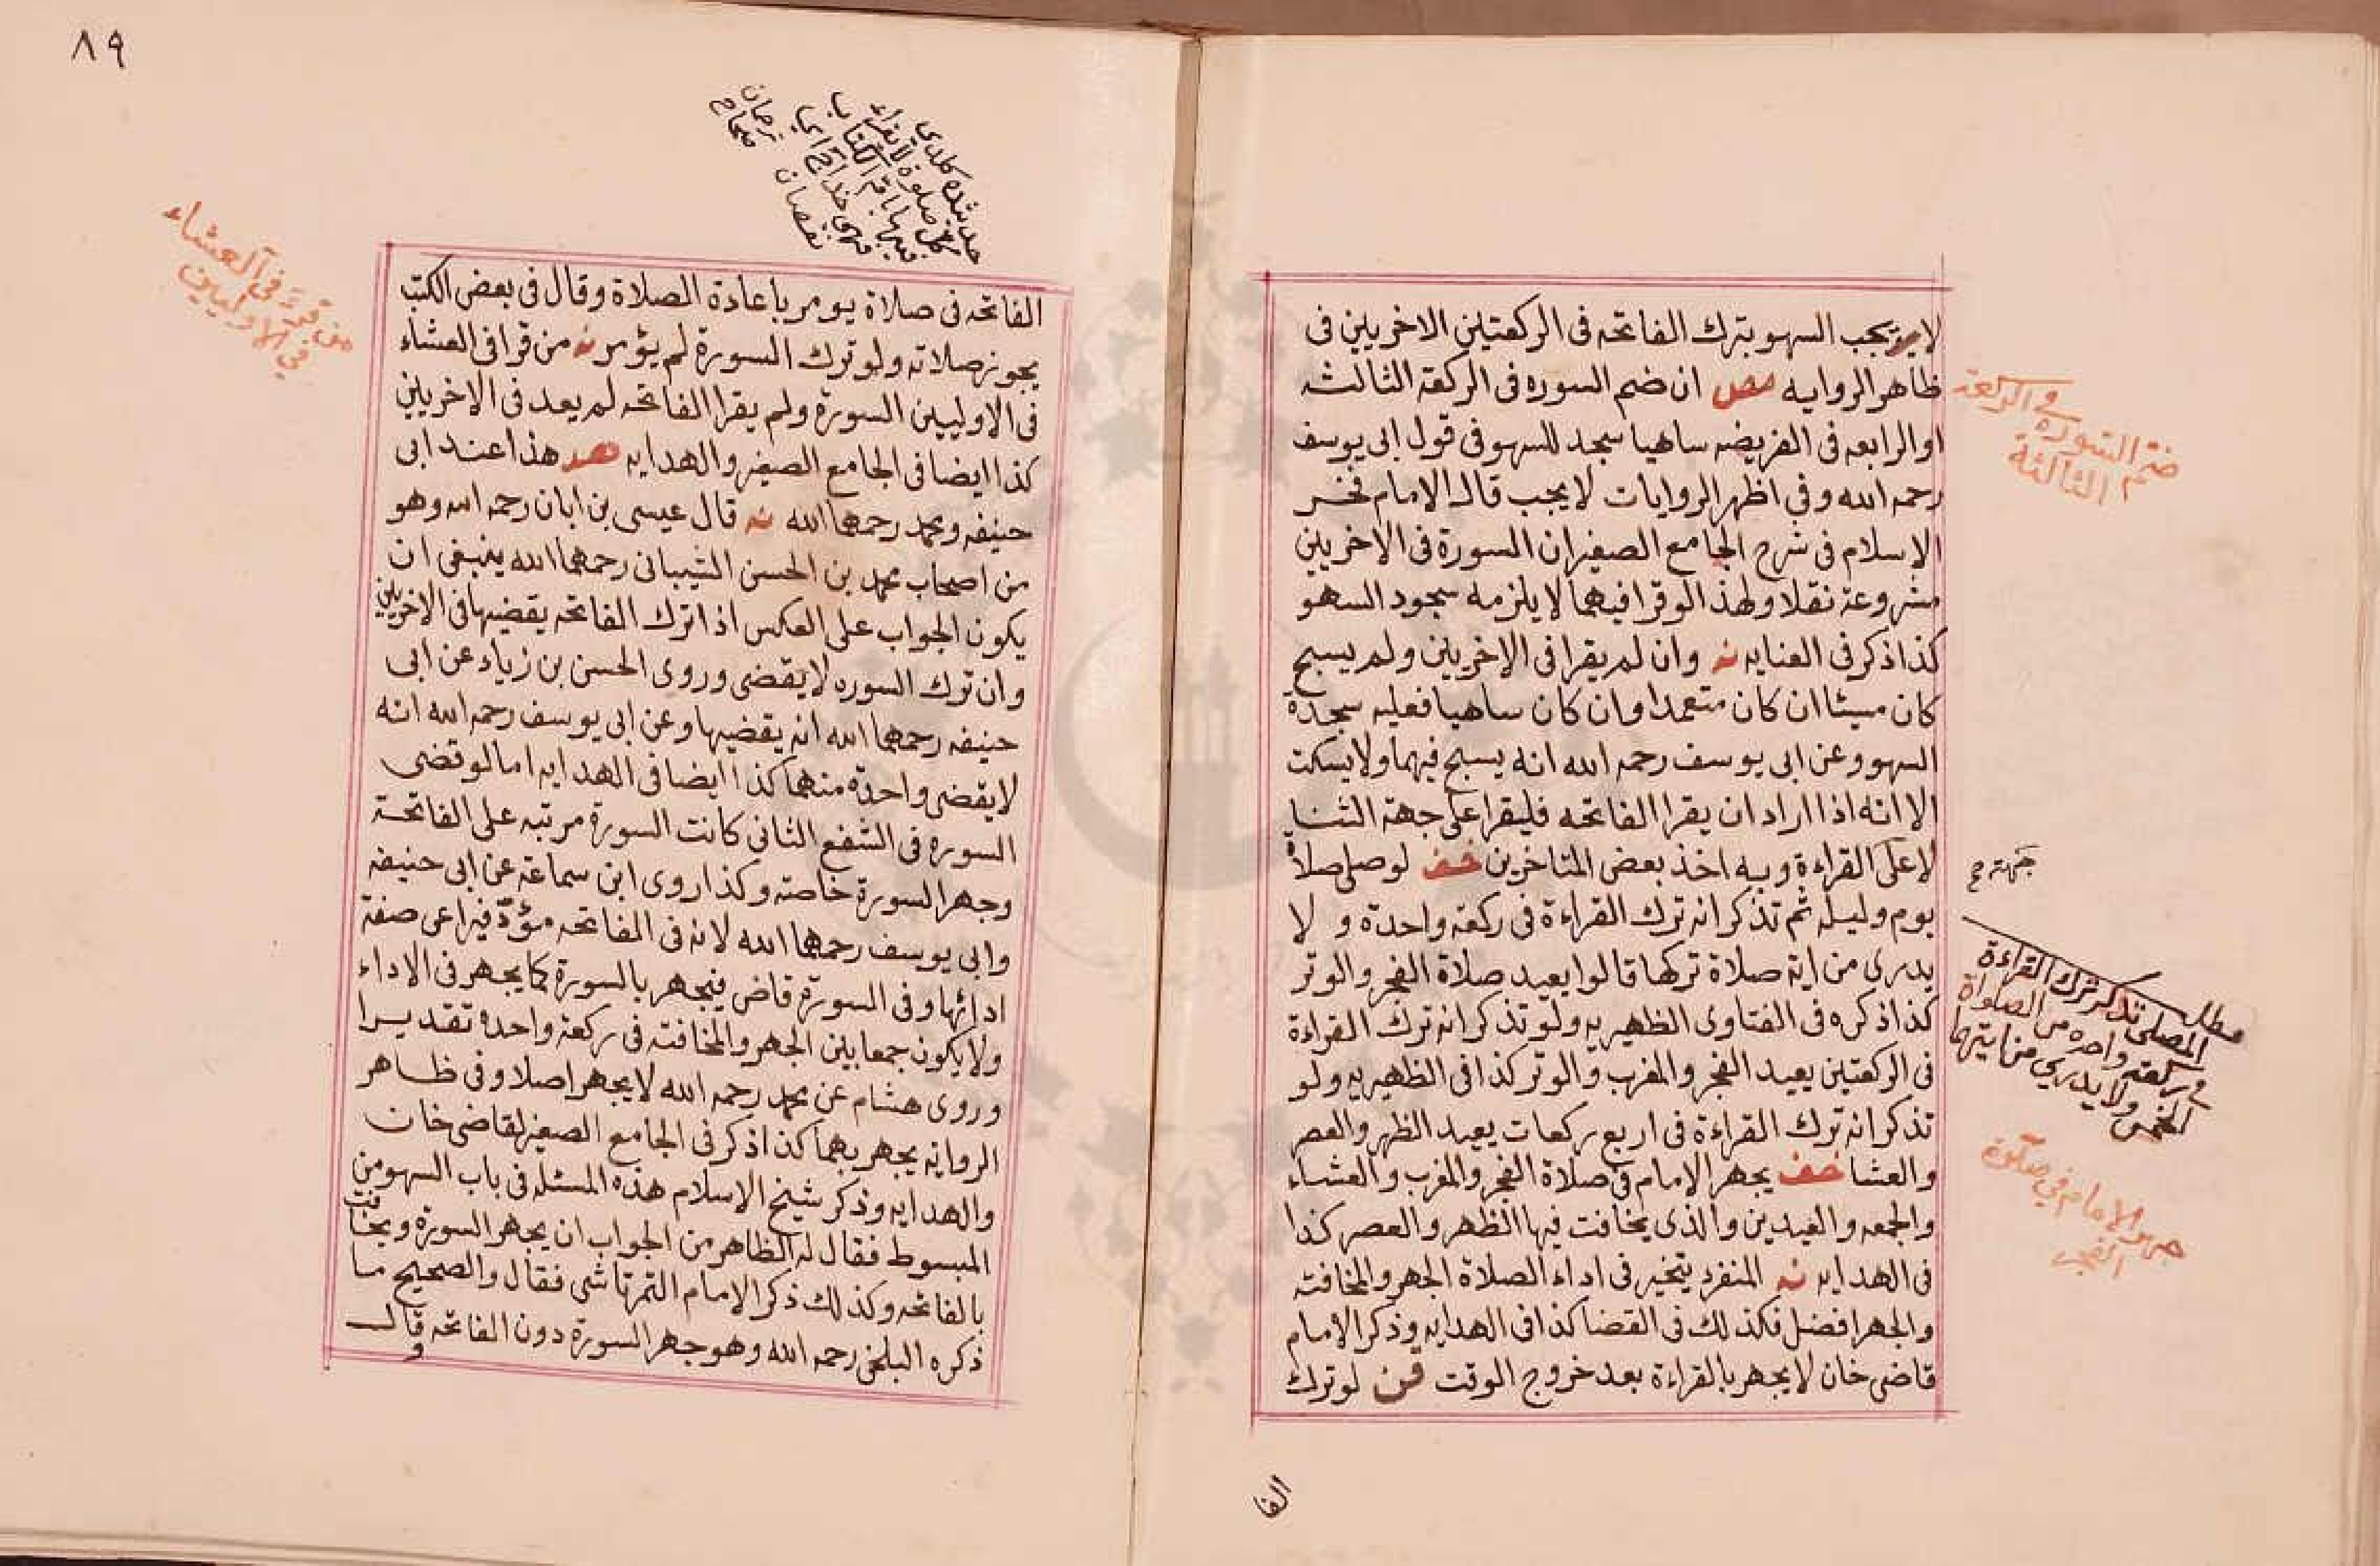 لا يجب السهو بترك الفاتحه فى الركعتين الاخريين فى
ظاهر الروايه مص ان ضم السوره فى الركعة الثالثه
او الرابعه فى الفريضه ساهيا سجد للسهو فى قول ابى يوسف
رحمه الله وفى اظهر الروايات لا يجب قال الامام فخر
الاسلام فى شرح الجامع الصغير ان السورة فى الاخريين
مشروعة نفلا ولهذا لو قرا فيهما لا يلزمه سجود السهو
كذا ذكر فى العنايه نه وان لم يقرا فى الاخريين ولم يسبح
كان مسيئا ان كان متعمدا وان كان ساهيا فعليه سجدة
السهو وعن ابى يوسف رحمه الله انه يسبح فيهما ولا يسكت
الا انه اذا اراد ان يقرا الفاتحه فليقرا على جهة الثنا
لا على القراءة وبه اخذ بعض المتاخرين خف لو صلى صلاة
يوم وليله ثم تذكر انه ترك القراءة فى ركعة واحدة و لا
يدرى من اية صلاة تركها قالوا يعيد صلاة الفجر والوتر
كذا ذكره فى الفتاوى الظهيريه ولو تذكر انه ترك القراءة
فى الركعتين يعيد الفجر والمغرب والوتر كذا فى الظهيريه ولو
تذكر انه ترك القراءة فى اربع ركعات يعيد الظهر والعصر
والعشا خف يجهر الامام فى صلاة الفجر والمغرب والعشاء
والجمعه والعيدين والذى يخافت فيها الظهر والعصر كذا
فى الهدايه نه المنفرد يتخير فى اداء الصلاة الجهر والمخافته
والجهر افضل فكذلك فى القضا كذا فى الهدايه وذكر الامام
قاضى خان لا يجهر بالقراءة بعد خروج الوقت قن لو ترك
الفا
ضم السورة فى الركعة
الثالثة
جهة صح
مطلب
المصلى تذكر ترك القراءة
فى ركعة واحده من الصلواة
الخمس ولا يدرى من ايتها
جهر الامام فى صلوة
الفجر
٨٩
كل صلوة لا يقراء
فيها بفاتحة الكتاب
فهى خداج اى
نقصان
من قرء فى العشاء
فى الاوليين
الفاتحه فى صلاة يومر باعادة الصلاة وقال فى بعض الكتب
يجوز صلاته ولو ترك السورة لم يؤمر نه من قرا فى العشاء
فى الاوليين السورة ولم يقرا الفاتحه لم يعد فى الاخريين
كذا ايضا فى الجامع الصغير والهدايه هد هذا عند ابى
حنيفه ومحمد رحمهما الله نه قال عيسى بن ابان رحمه الله وهو
من اصحاب محمد بن الحسن الشيبانى رحمهما الله ينبغى ان
يكون الجواب على العكس اذا ترك الفاتحه يقضيها فى الاخريين
وان ترك السوره لا يقضى وروى الحسن بن زياد عن ابى
حنيفه رحمهما الله انه يقضيها وعن ابى يوسف رحمه الله انه
لا يقضى واحدة منهما كذا ايضا فى الهدايه اما لو قضى
السوره فى الشفع الثانى كانت السورة مرتبه على الفاتحة
وجهر السورة خاصته وكذا روى ابن سماعة عن ابى حنيفه
وابى يوسف رحمهما الله لانه فى الفاتحه مؤد فيراعى صفة
ادائها وفى السورة قاض فيجهر بالسورة كما يجهر فى الاداء
ولا يكون جمعا بين الجهر والمخافته فى ركعة واحده تقديرا
وروى هشام عن محمد رحمه الله لا يجهر اصلا وفى ظاهر
الروايه يجهر بهما كذا ذكر فى الجامع الصغير لقاضى خان
والهدايه وذكر شيخ الاسلام هذه المسئله فى باب السهو من
المبسوط فقال له الظاهر من الجواب ان يجهر السورة ويخافت
بالفاتحه وكذلك ذكر الامام التمرتاشى فقال والصحيح ما
ذكره البلخى رحمه الله وهو جهر السورة دون الفاتحه قال
و